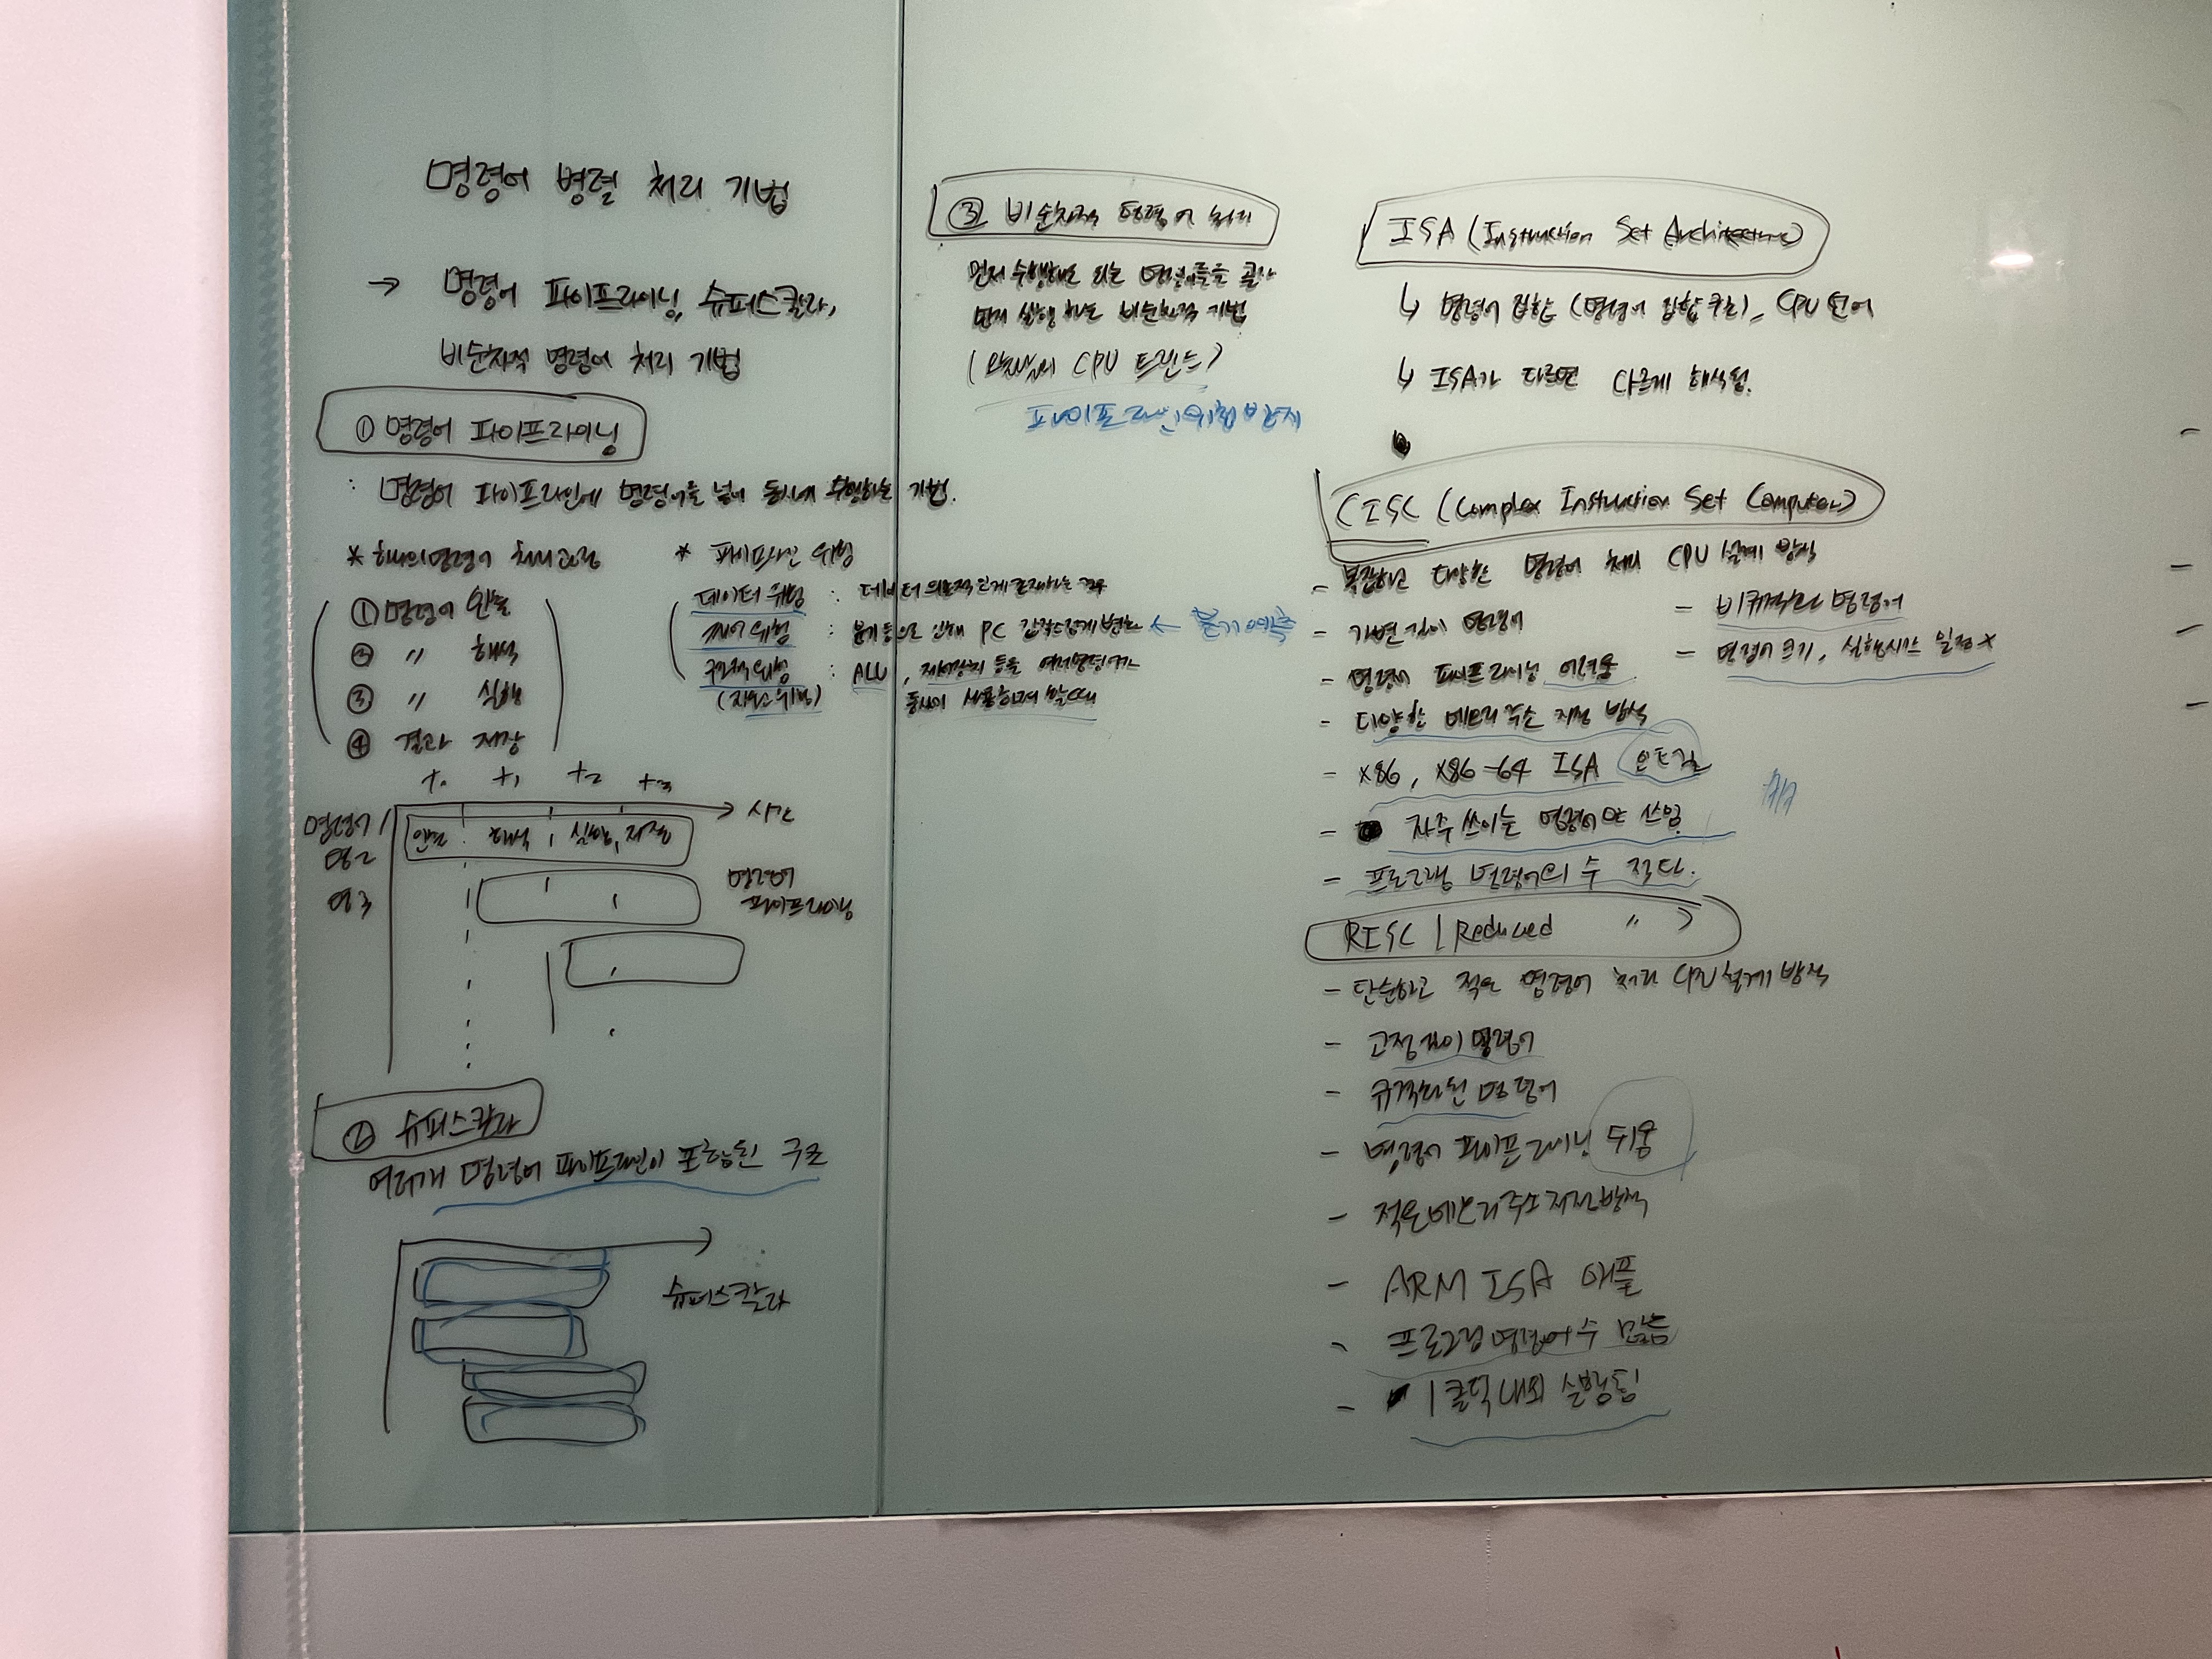 명령어 병렬 처리 기법
→ 명령어 파이프라이닝, 슈퍼스칼라,
비순차적 명령어 처리 기법
① 명령어 파이프라이닝
: 명령어 파이프라인에 명령어를 넣어 동시에 수행하는 기법.
* 하나의 명령어 처리과정
① 명령어 인출
② 〃 해석
③ 〃 실행
④ 결과 저장
* 파이프라인 위험
데이터 위험 : 데이터 의존적 관계 존재하는 경우
제어 위험 : 분기 등으로 인해 PC 갑작스럽게 변화 ← 분기예측
구조적 위험 : ALU, 제어장치 등을 여러 명령어가
(자원 위험) 동시에 사용하려 할 때
t0 t1 t2 t3
시간
명령어1 인출 해석 실행 저장
명2
명3
명령어
파이프라이닝
② 슈퍼스칼라
여러개 명령어 파이프라인이 포함된 구조
슈퍼스칼라
③ 비순차적 명령어 처리
먼저 수행해도 되는 명령어들을 골라
먼저 실행하는 비순차적 기법
(오늘날의 CPU 트렌드)
파이프라인 위험 방지
ISA (Instruction Set Architecture)
↳ 명령어 집합 (명령어 집합 구조), CPU 언어
↳ ISA가 다르면 다르게 해석됨.
CISC (Complex Instruction Set Computer)
- 복잡하고 다양한 명령어 처리 CPU 설계 방식
- 가변 길이 명령어
- 비규격화 명령어
- 명령어 크기, 실행시간 일정 X
- 명령어 파이프라이닝 어려움
- 다양한 메모리 주소 지정 방식
- x86, x86-64 ISA 인텔
- 자주 쓰이는 명령어만 쓰임.
- 프로그램 명령어의 수 적다.
RISC (Reduced 〃 )
- 단순하고 적은 명령어 처리 CPU 설계 방식
- 고정 길이 명령어
- 규격화된 명령어
- 명령어 파이프라이닝 쉬움
- 적은 메모리 주소 지정 방식
- ARM ISA 애플
- 프로그램 명령어 수 많음
- 1클럭 내외 실행됨